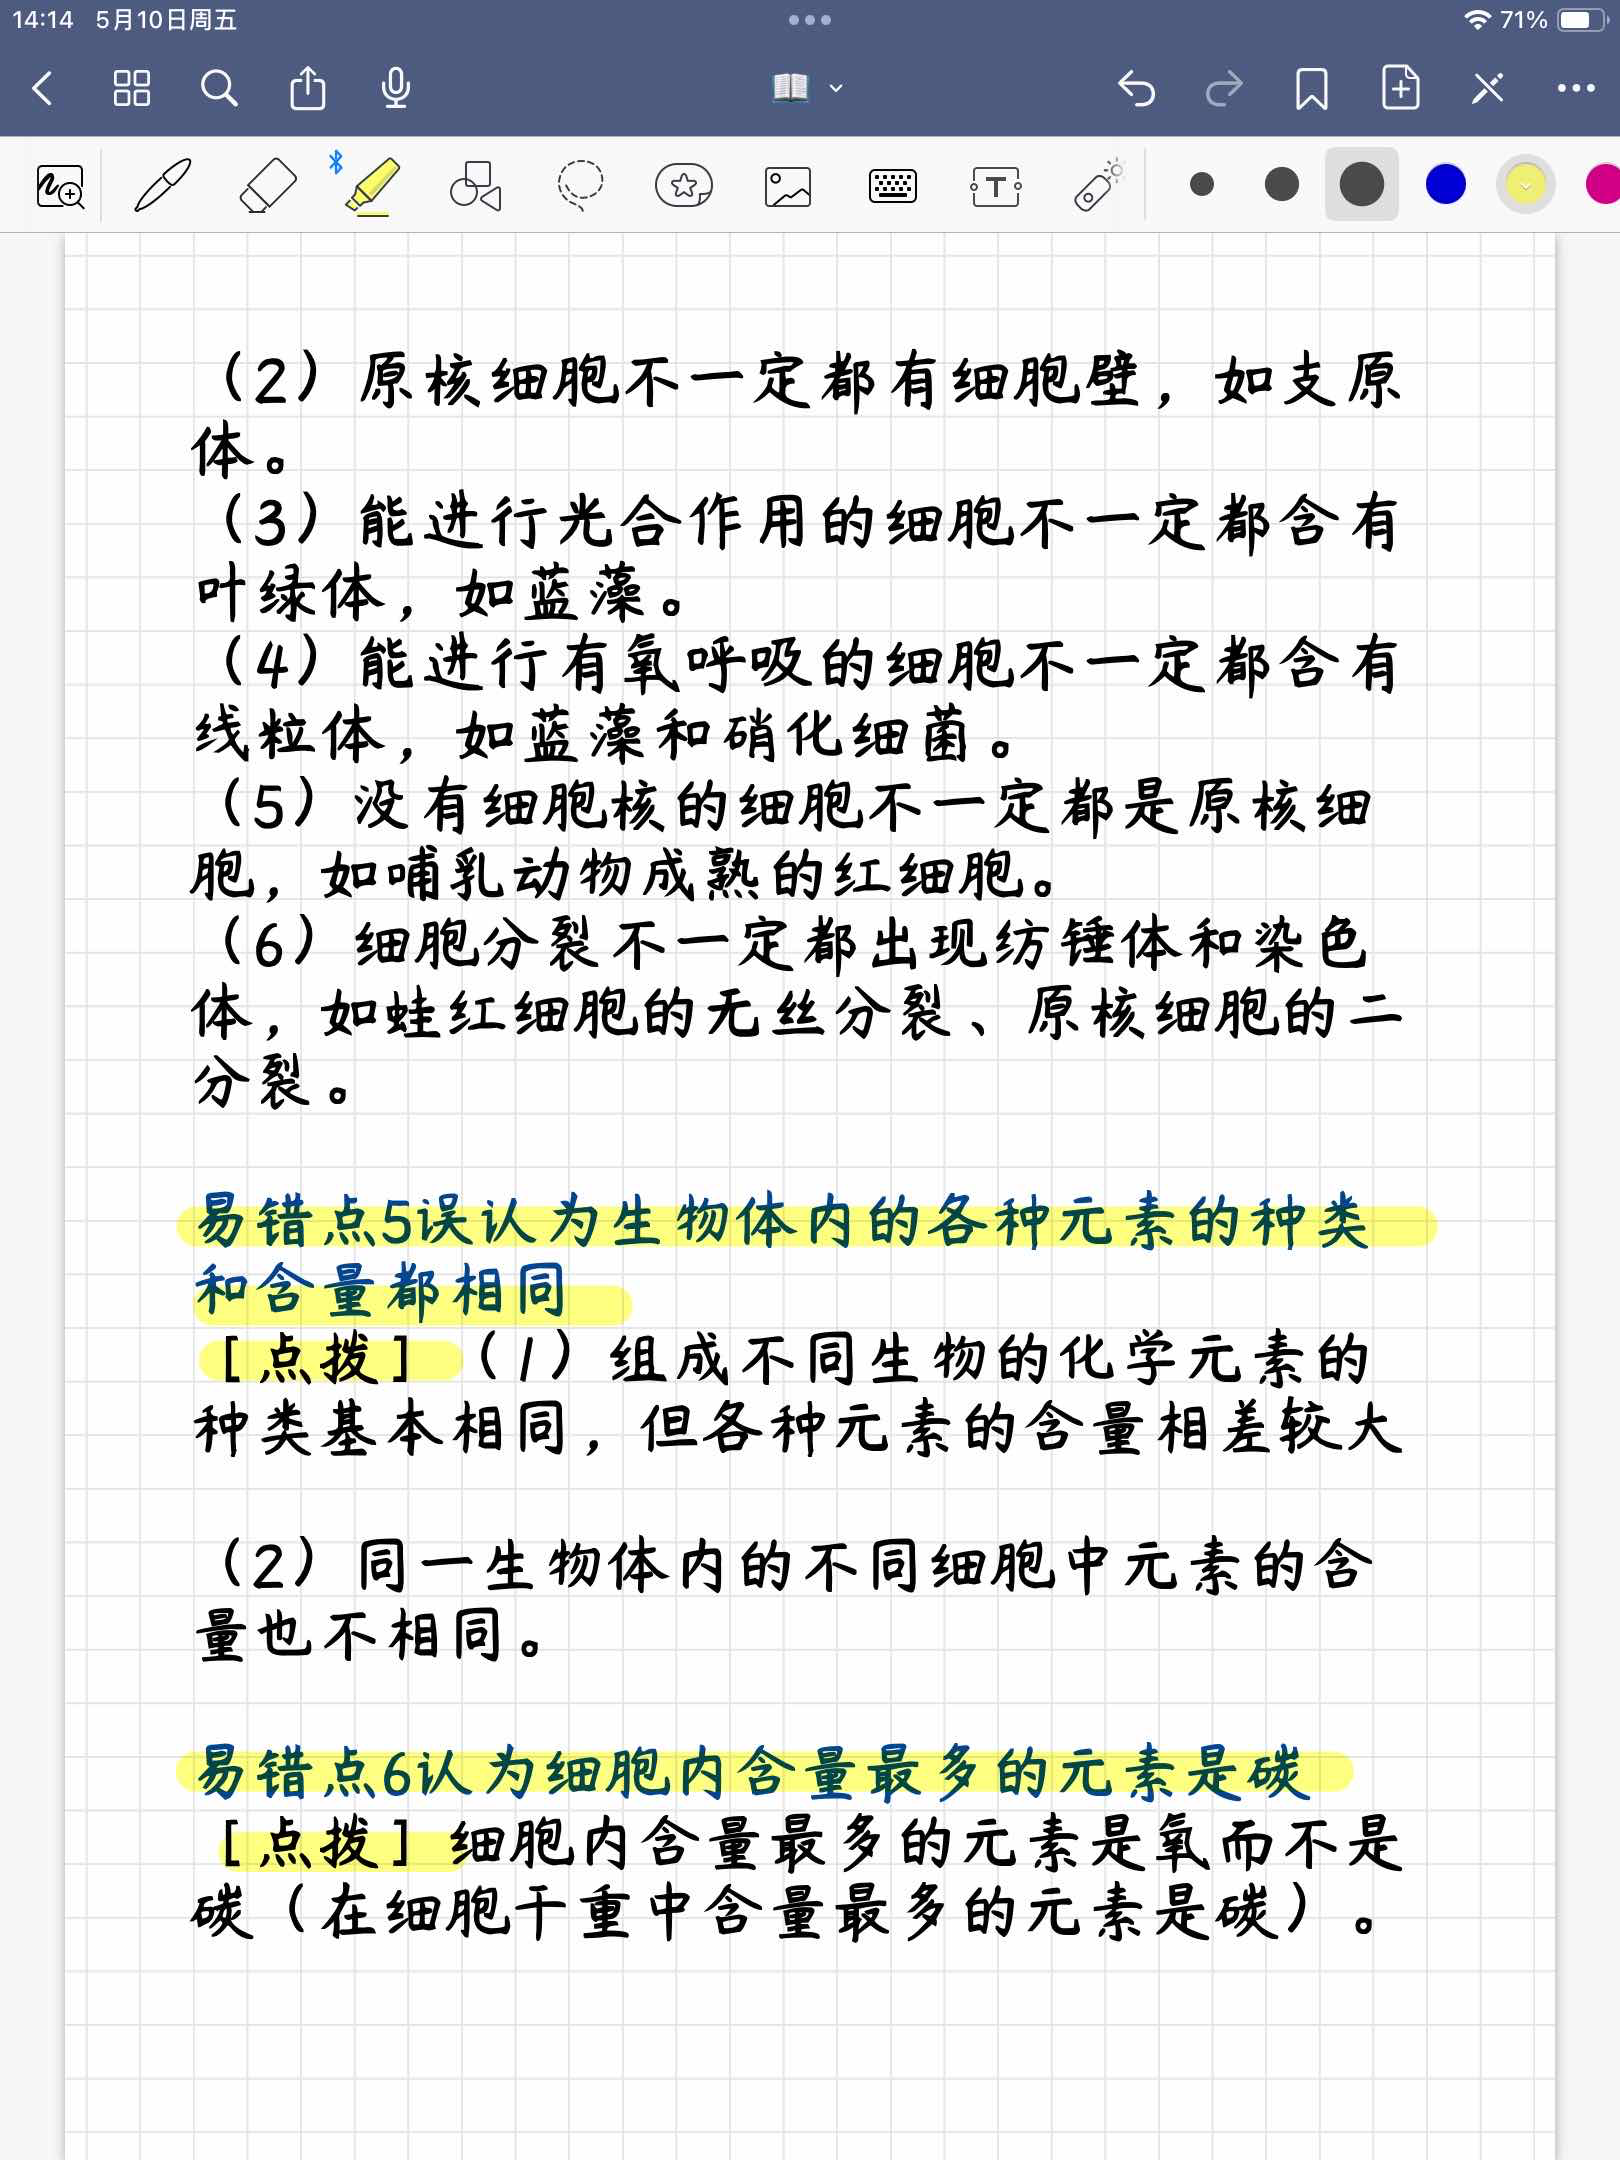 14:14 5月10日周五
71%
（2）原核细胞不一定都有细胞壁，如支原
体。
（3）能进行光合作用的细胞不一定都含有
叶绿体，如蓝藻。
（4）能进行有氧呼吸的细胞不一定都含有
线粒体，如蓝藻和硝化细菌。
（5）没有细胞核的细胞不一定都是原核细
胞，如哺乳动物成熟的红细胞。
（6）细胞分裂不一定都出现纺锤体和染色
体，如蛙红细胞的无丝分裂、原核细胞的二
分裂。
易错点5误认为生物体内的各种元素的种类
和含量都相同
［点拨］（1）组成不同生物的化学元素的
种类基本相同，但各种元素的含量相差较大
（2）同一生物体内的不同细胞中元素的含
量也不相同。
易错点6认为细胞内含量最多的元素是碳
［点拨］细胞内含量最多的元素是氧而不是
碳（在细胞干重中含量最多的元素是碳）。